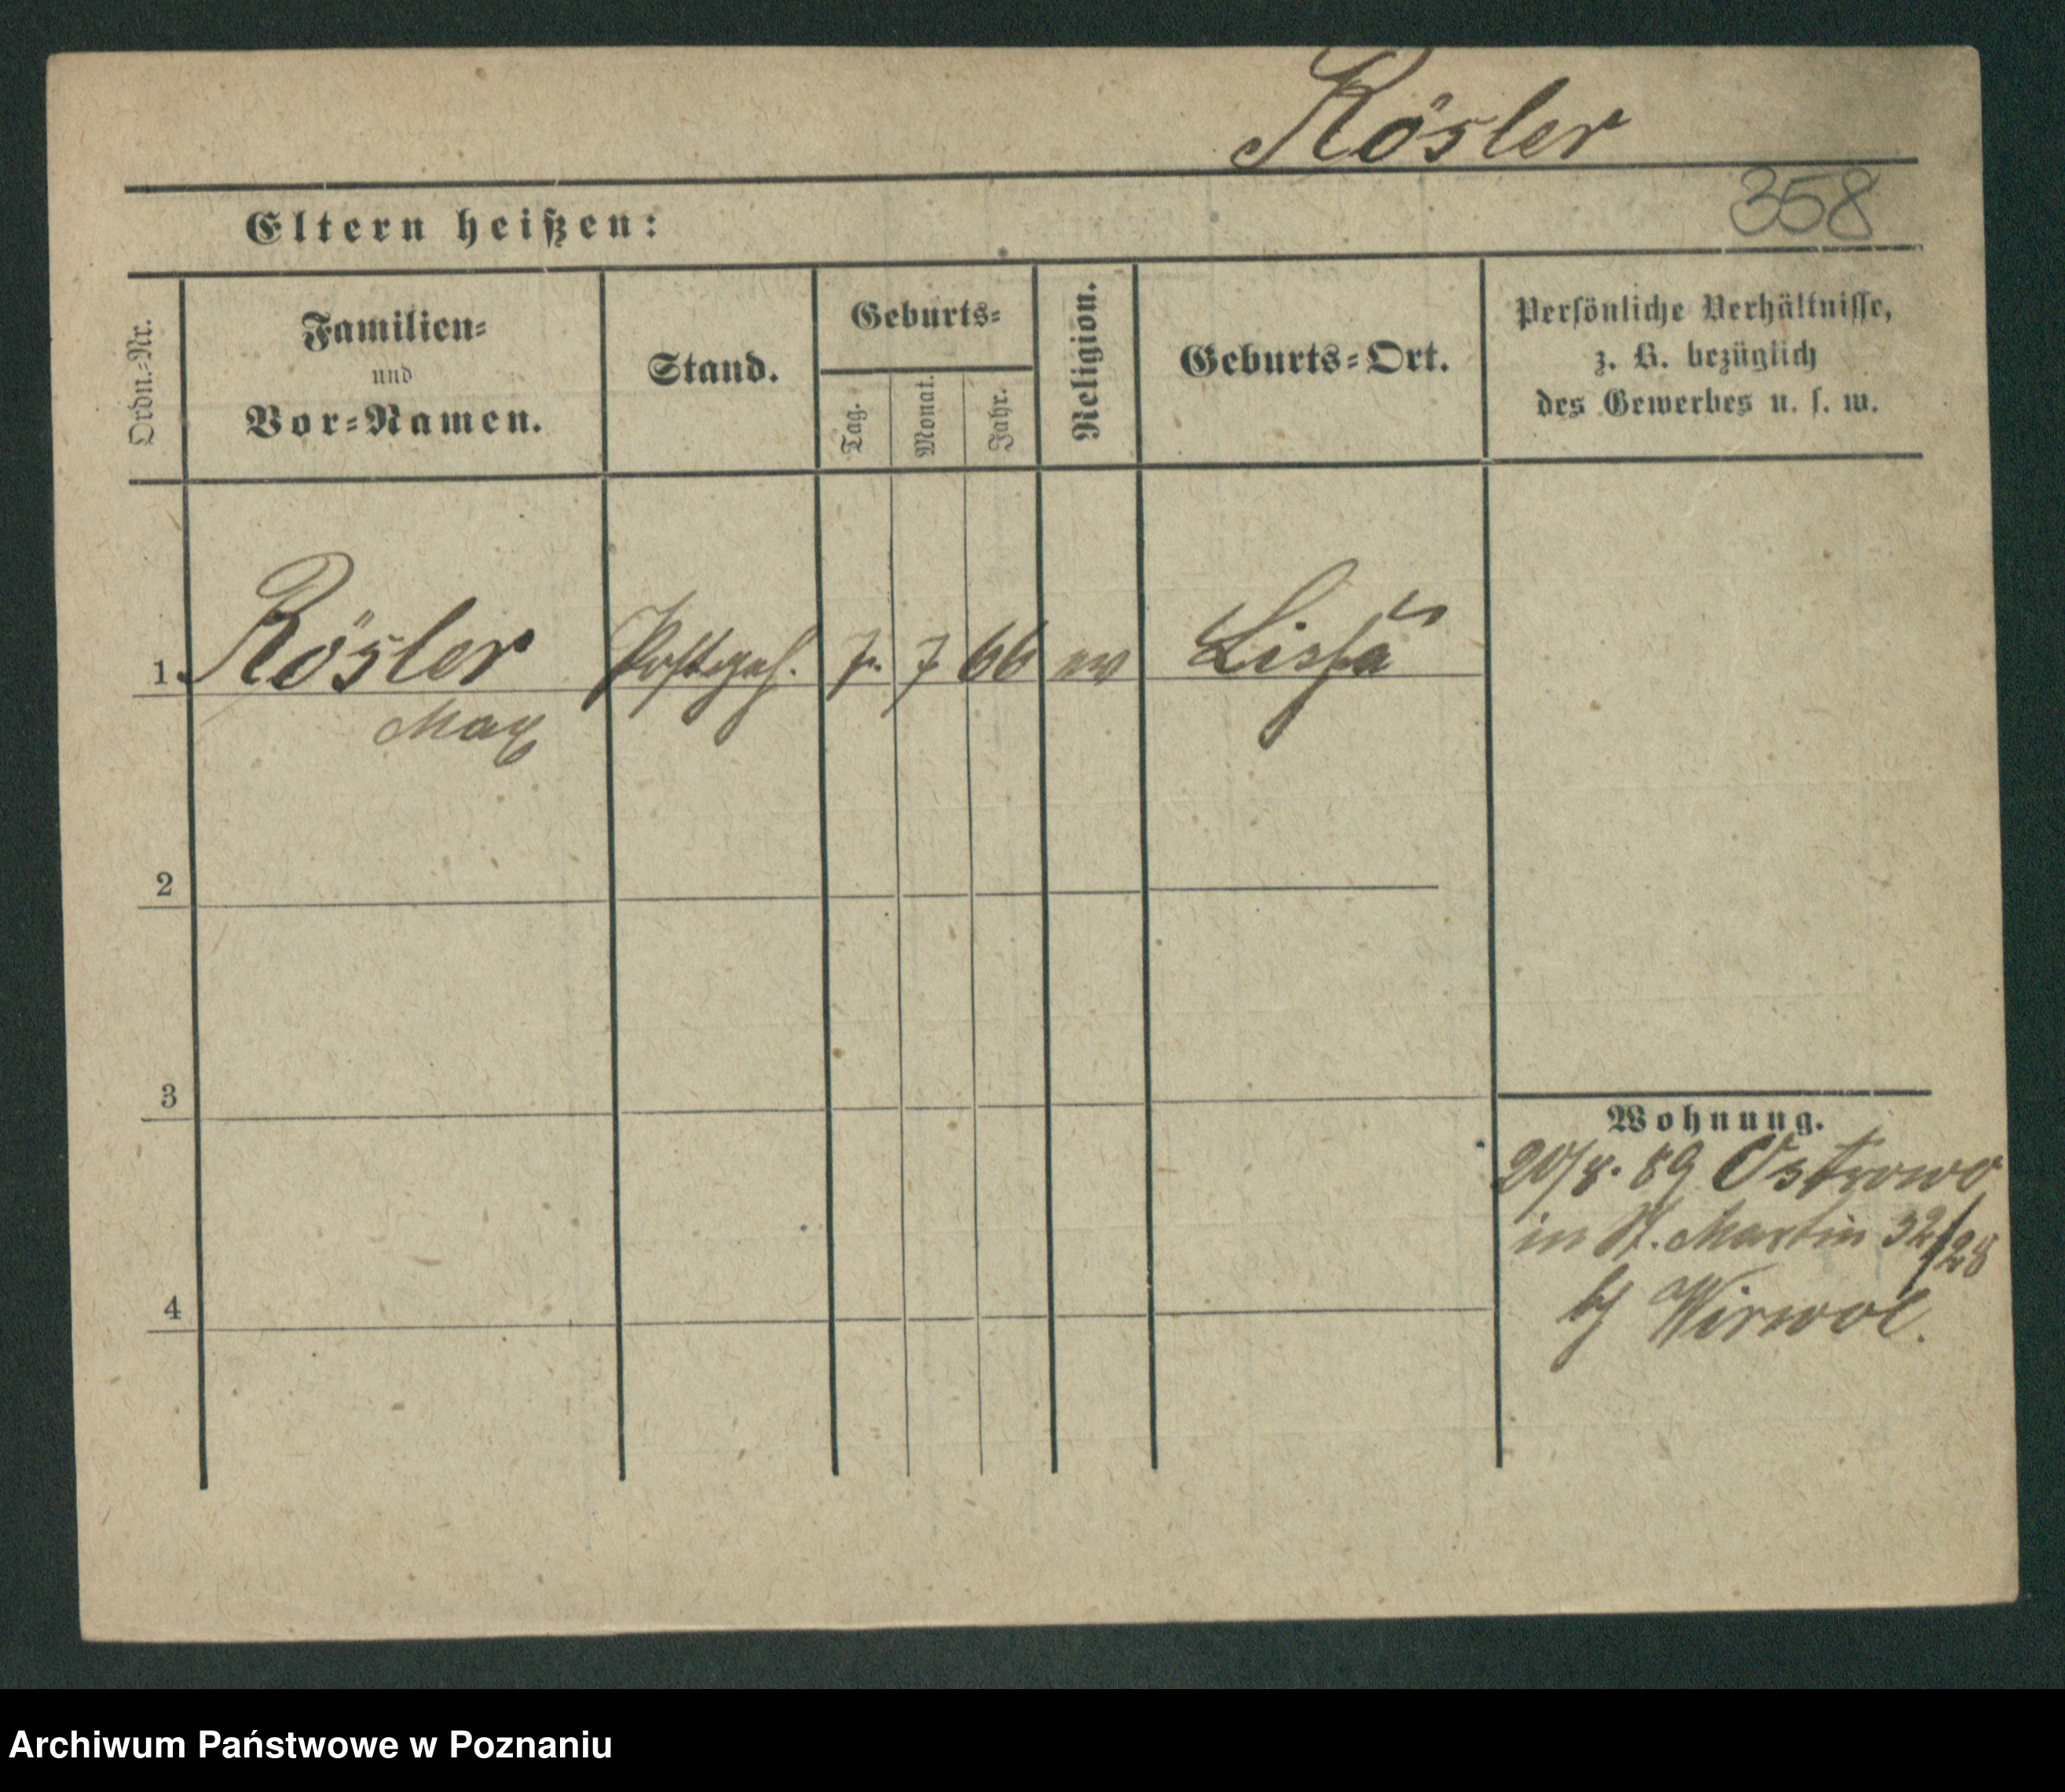 Rösler
358
Eltern heißen:
Ordn.-Nr.
Familien-
und
Vor-Namen.
Stand.
Geburts-
Tag.
Monat.
Jahr.
Religion.
Geburts-Ort.
Persönliche Verhältnisse,
z. B. bezüglich
des Gewerbes u. s. w.
1. Rösler Postgeh. 7. 7 66 ev Lissa
Max
2
3
4
Wohnung.
20/8. 89 Ostrowo
in St. Martin 32/28
by Wirwol.
Archiwum Państwowe w Poznaniu